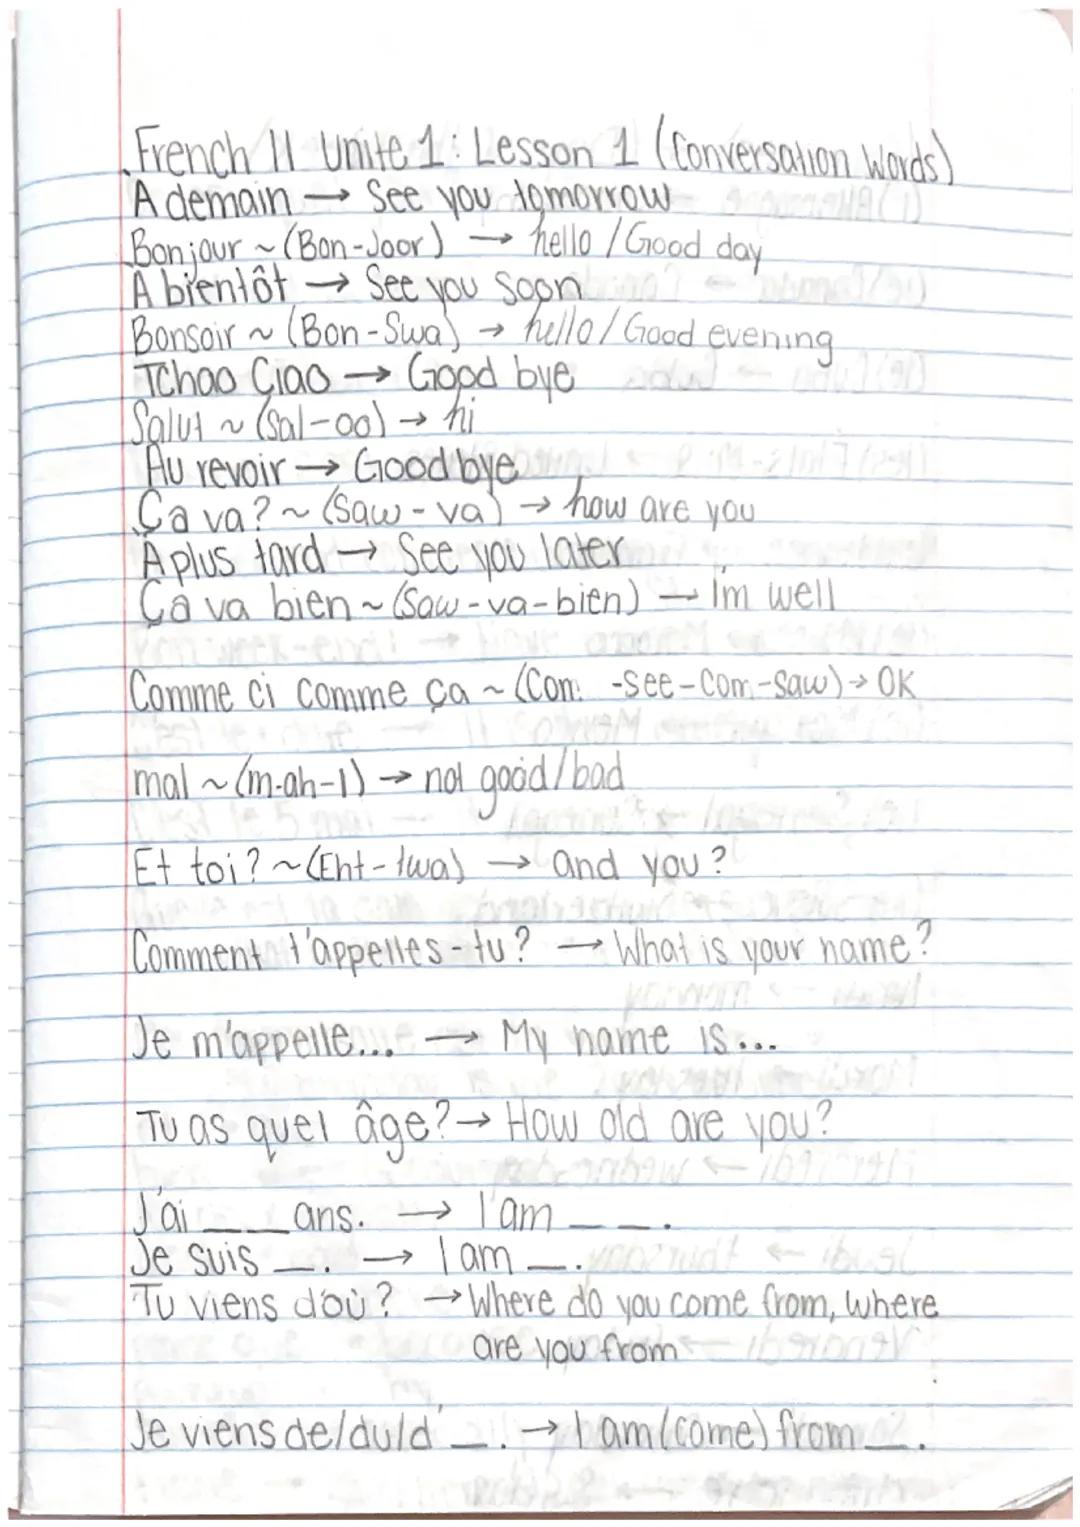 French II Unite 1: Lesson 1 (Conversation Words)
A demain → See you tomorrow
Bonjour ~ (Bon-Joor) → hello / Good day
A bientôt → See you soon
Bonsoir ~ (Bon-Swa) → hello/Good evening
Tchao Ciao → Good bye
Salut ~ (Sal-oo) → hi
Au revoir → Goodbye
Ça va? ~ (Saw-va) → how are you
À plus tard → See you later
Ça va bien ~ (Saw-va-bien) → I'm well
Comme ci comme ça ~ (Com -see-Com-saw) → OK
mal ~ (m-ah-l) → not good/bad
Et toi? ~ (Eht-twa) → and you?
Comment t'appelles-tu? → What is your name?
Je m'appelle... → My name is...
Tu as quel âge? → How old are you?
J'ai ___ ans. → I'am __.
Je suis __. → I am __.
Tu viens d'où? → Where do you come from, where
are you from
Je viens de/du/d' __. → I am (come) from __.